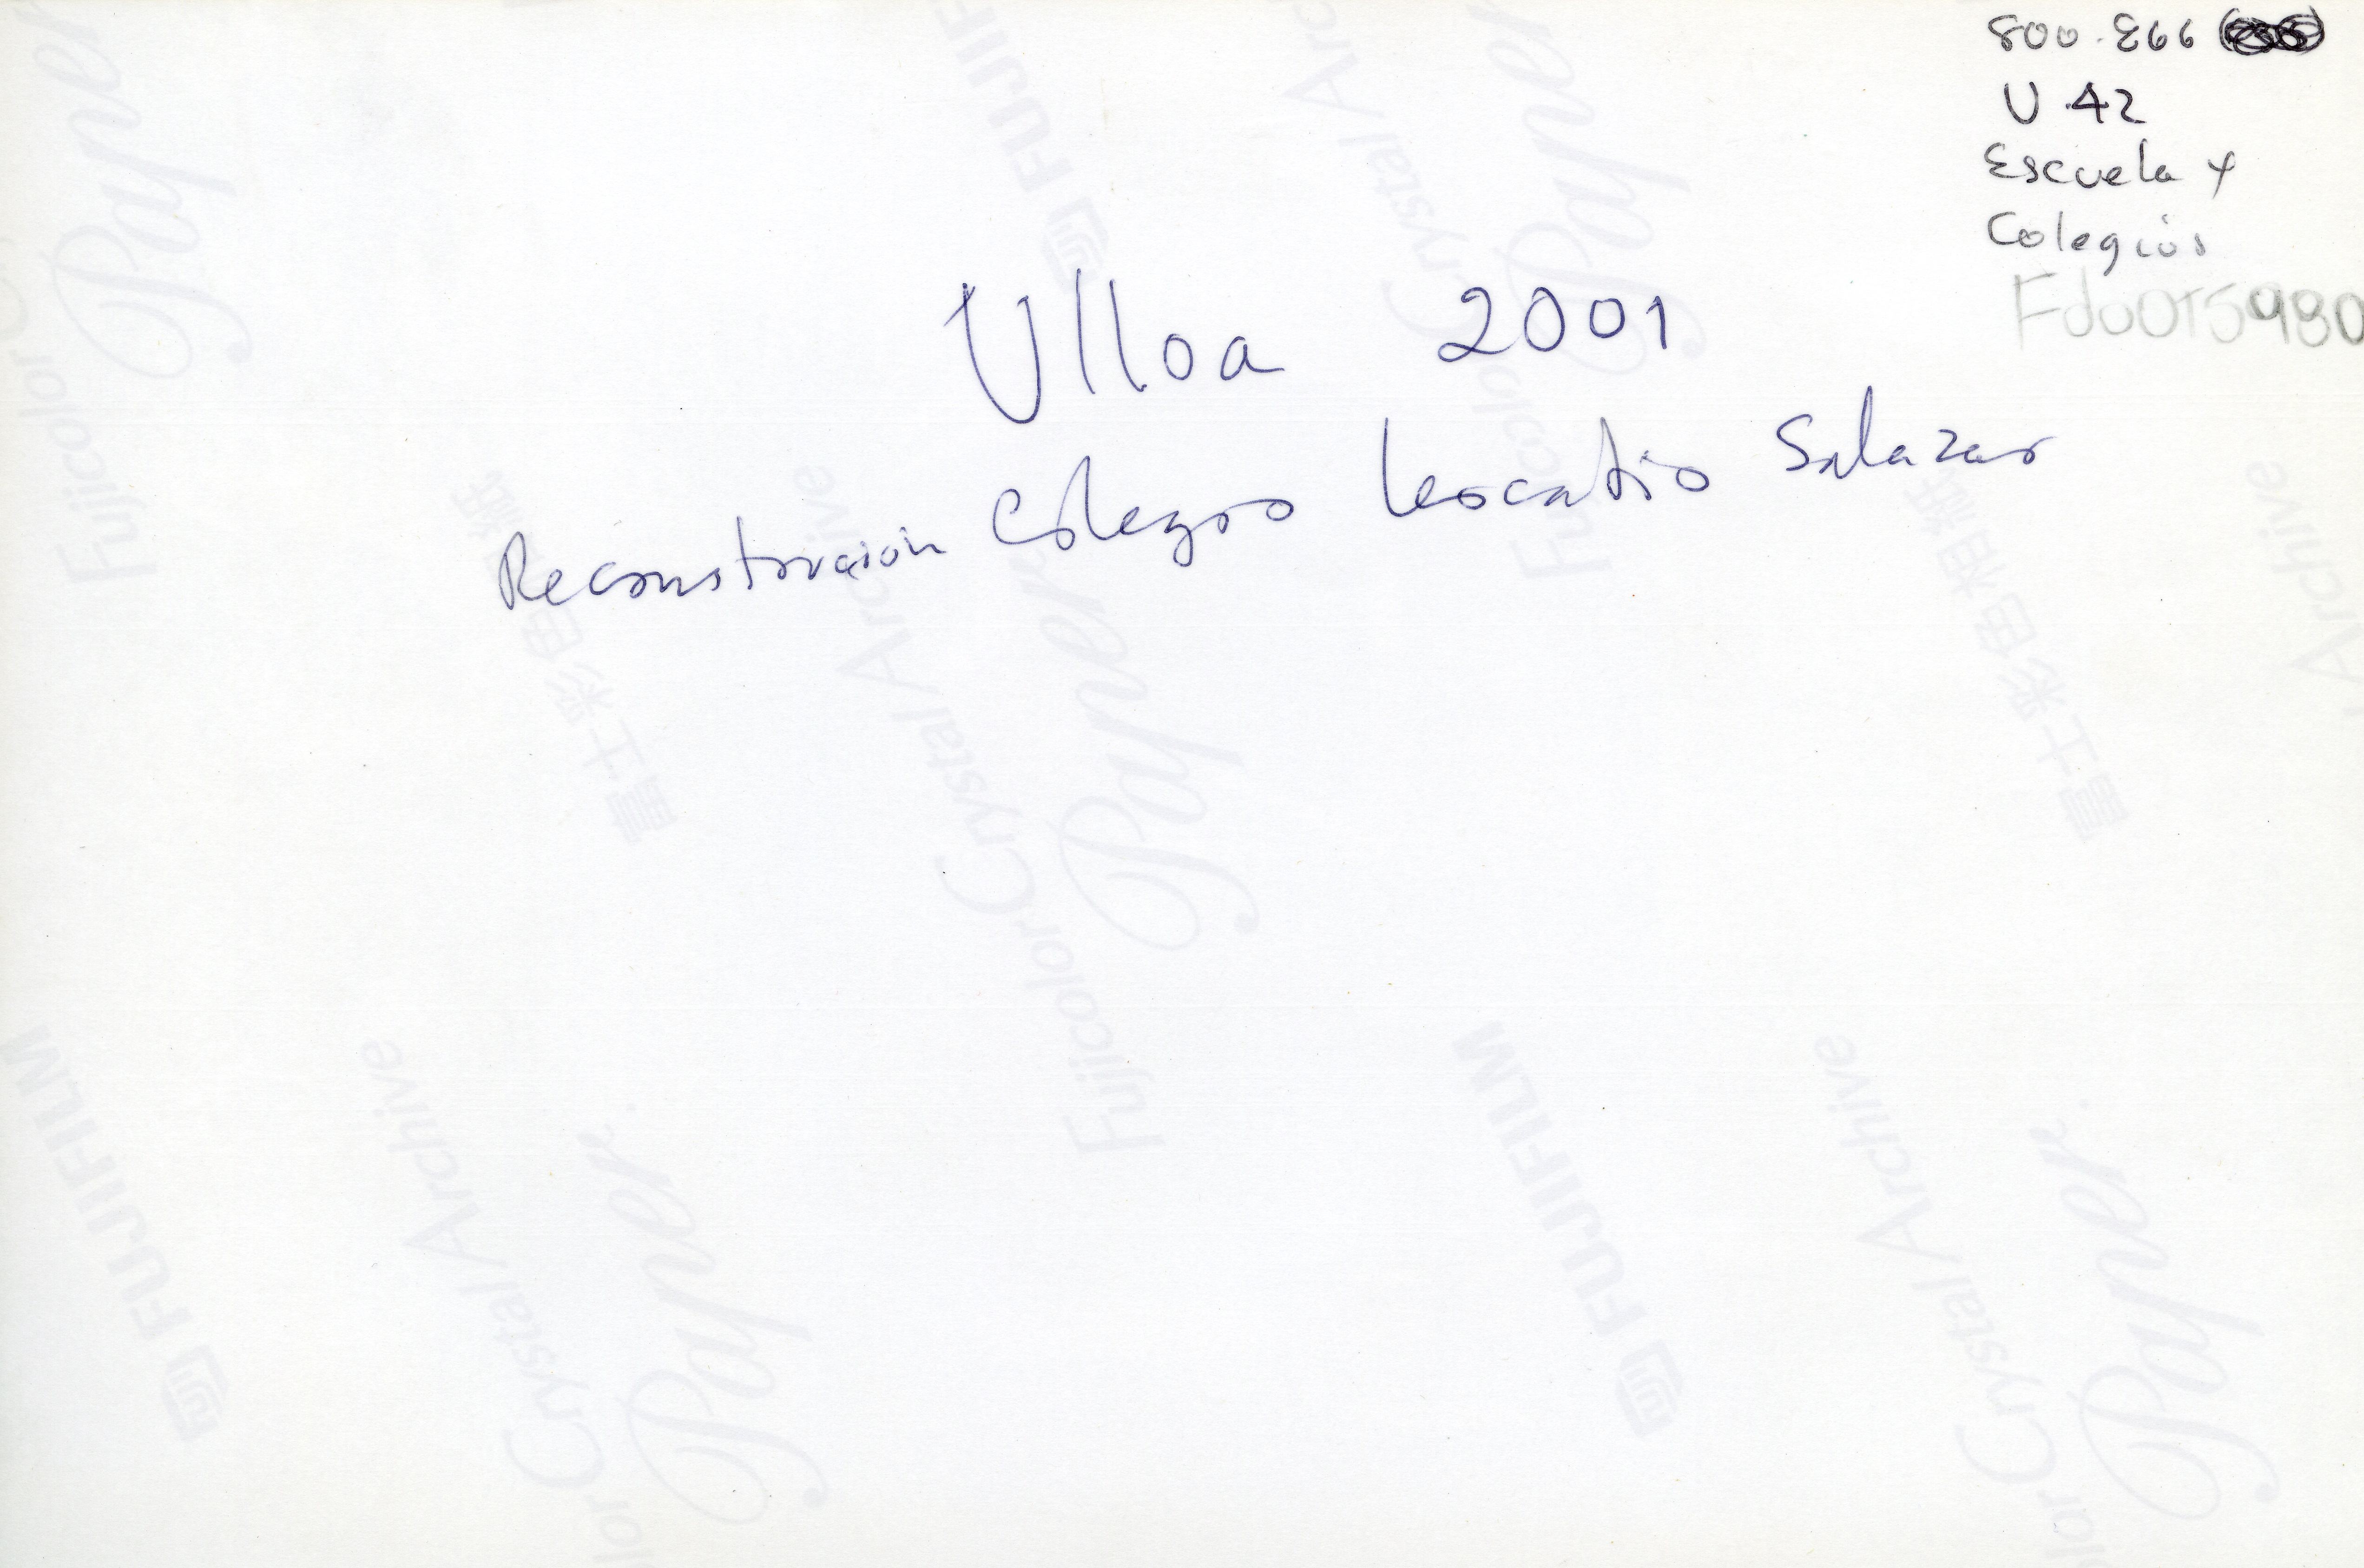 800.866
U.42
Escuela y
Colegios
Fdo015980
Ulloa 2001
Reconstrucion Colegio Leocadio Salazar
Fujicolor Crystal Archive
Payner.
FUJIFILM